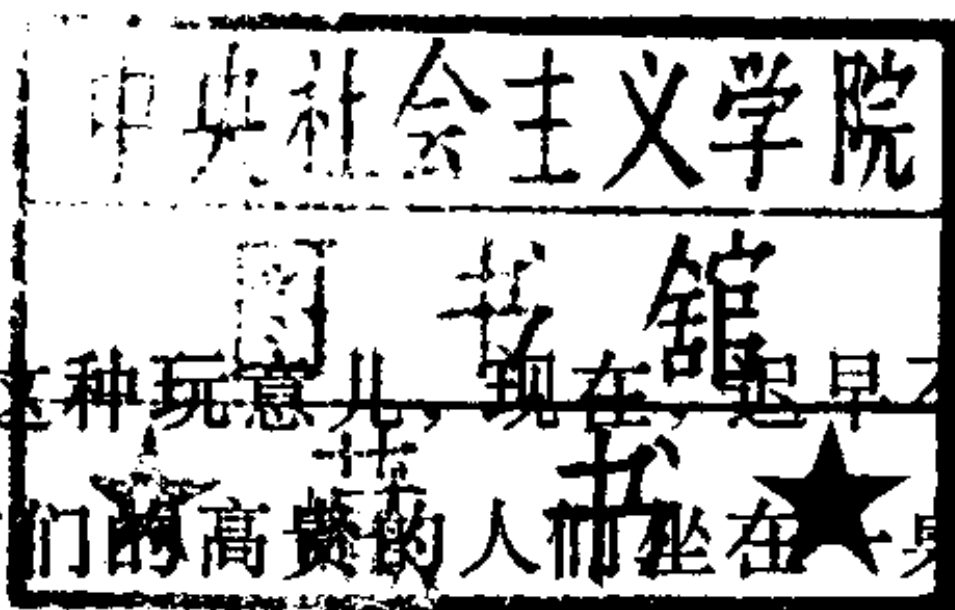 中央社会主义学院
图书馆
这种玩意儿,现在,迟早不
藏书
们的高贵的人们坐在一